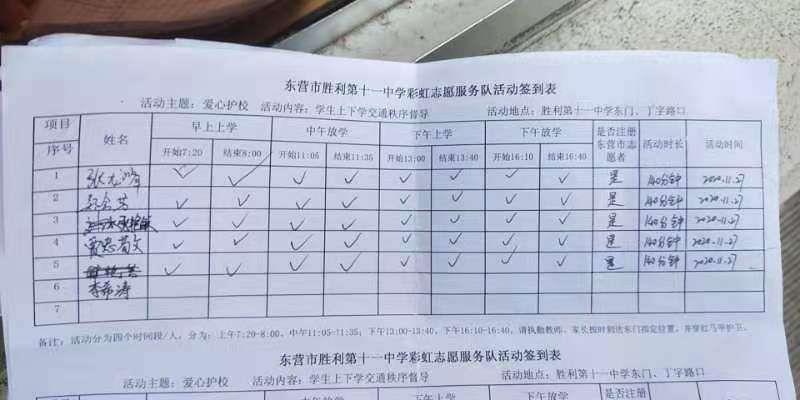 东营市胜利第十一中学彩虹志愿服务队活动签到表
活动主题：爱心护校 活动内容：学生上下学交通秩序督导 活动地点：胜利第十一中学东门、丁字路口
项目 序号 姓名 早上上学 中午放学 下午上学 下午放学 是否注册东营市志愿者 活动时长 活动时间
开始7:20 结束8:00 开始11:05 结束11:35 开始13:00 结束13:40 开始16:10 结束16:40
1 ✓ ✓ ✓ ✓ ✓ ✓ ✓ ✓ 是 140分钟 2020.11.27
2 ✓ ✓ ✓ ✓ ✓ ✓ ✓ ✓ 是 140分钟 2020.11.27
3 ✓ ✓ ✓ ✓ ✓ ✓ ✓ ✓ 是 140分钟 2020.11.27
4 贾忠菊文 ✓ ✓ ✓ ✓ ✓ ✓ ✓ ✓ 是 140分钟 2020.11.27
5 ✓ ✓ ✓ ✓ ✓ ✓ ✓ ✓ 是 140分钟 2020.11.27
6 李希涛
7
备注：活动分为四个时间段/人，分为：上午7:20-8:00、中午11:05-11:35；下午13:00-13:40、下午16:10-16:40。请执勤教师、家长按时到达东门指定位置，并穿红马甲护卫。
东营市胜利第十一中学彩虹志愿服务队活动签到表
活动主题：爱心护校 活动内容：学生上下学交通秩序督导 活动地点：胜利第十一中学东门、丁字路口
是否注册